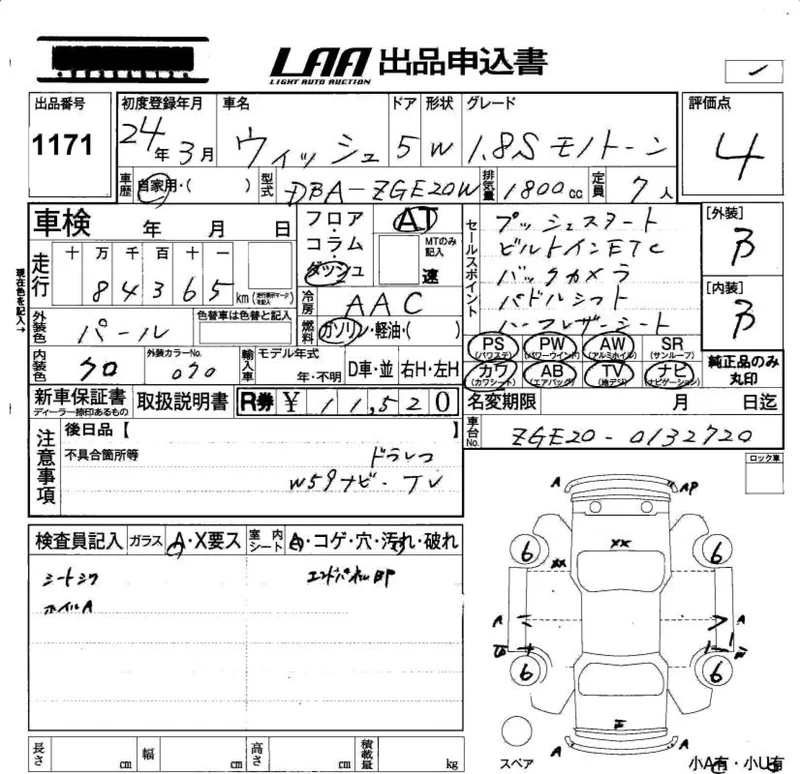 LAA 出品申込書
LIGHT AUTO AUCTION
出品番号 初度登録年月 車名 ドア 形状 グレード 評価点
1171 24年 3月 ウィッシュ 5 W 1.8S モノトーン 4
車歴 自家用・( ) 型式 DBA-ZGE20W 排気量 1800cc 定員 7人
車検 年 月 日 フロア AT
コラム MTのみ記入
ダッシュ 速
現在色を記入→
走行 十 万 千 百 十 一
8 4 3 6 5 km (走行表示マークを記入)
冷房 AAC
燃料 ガソリン・軽油・( )
外装色 パール 色替車は色替と記入
内装色 クロ 外装カラーNo. 070 輸入車 モデル年式 年・不明 D車・並 右H・左H
新車保証書 取扱説明書 R券 ¥ 11,520
ディーラー捺印あるもの
セールスポイント
プッシュスタート
ビルトインETC
バックカメラ
パドルシフト
ハーフレザーシート
[外装]
B
[内装]
B
PS PW AW SR
(パワステ) (パワーウインド) (アルミホイル) (サンルーフ)
カワ AB TV ナビ
(カワシート) (エアバッグ) (地デジ) (ナビゲーション)
純正品のみ丸印
名変期限 月 日迄
車台No. ZGE20-0132720
注意事項
後日品【 】
不具合箇所等 ドラレコ
W59ナビ・TV
ロック車
検査員記入 ガラス A・X要ス 室内シート A・コゲ・穴・汚れ・破れ
シートシワ エンドパネル凹
ホイルA
A AP
XX
XX
6 6
A A
6 6
F
A A
スペア
小A有・小U有
長さ cm 幅 cm 高さ cm 積載量 kg